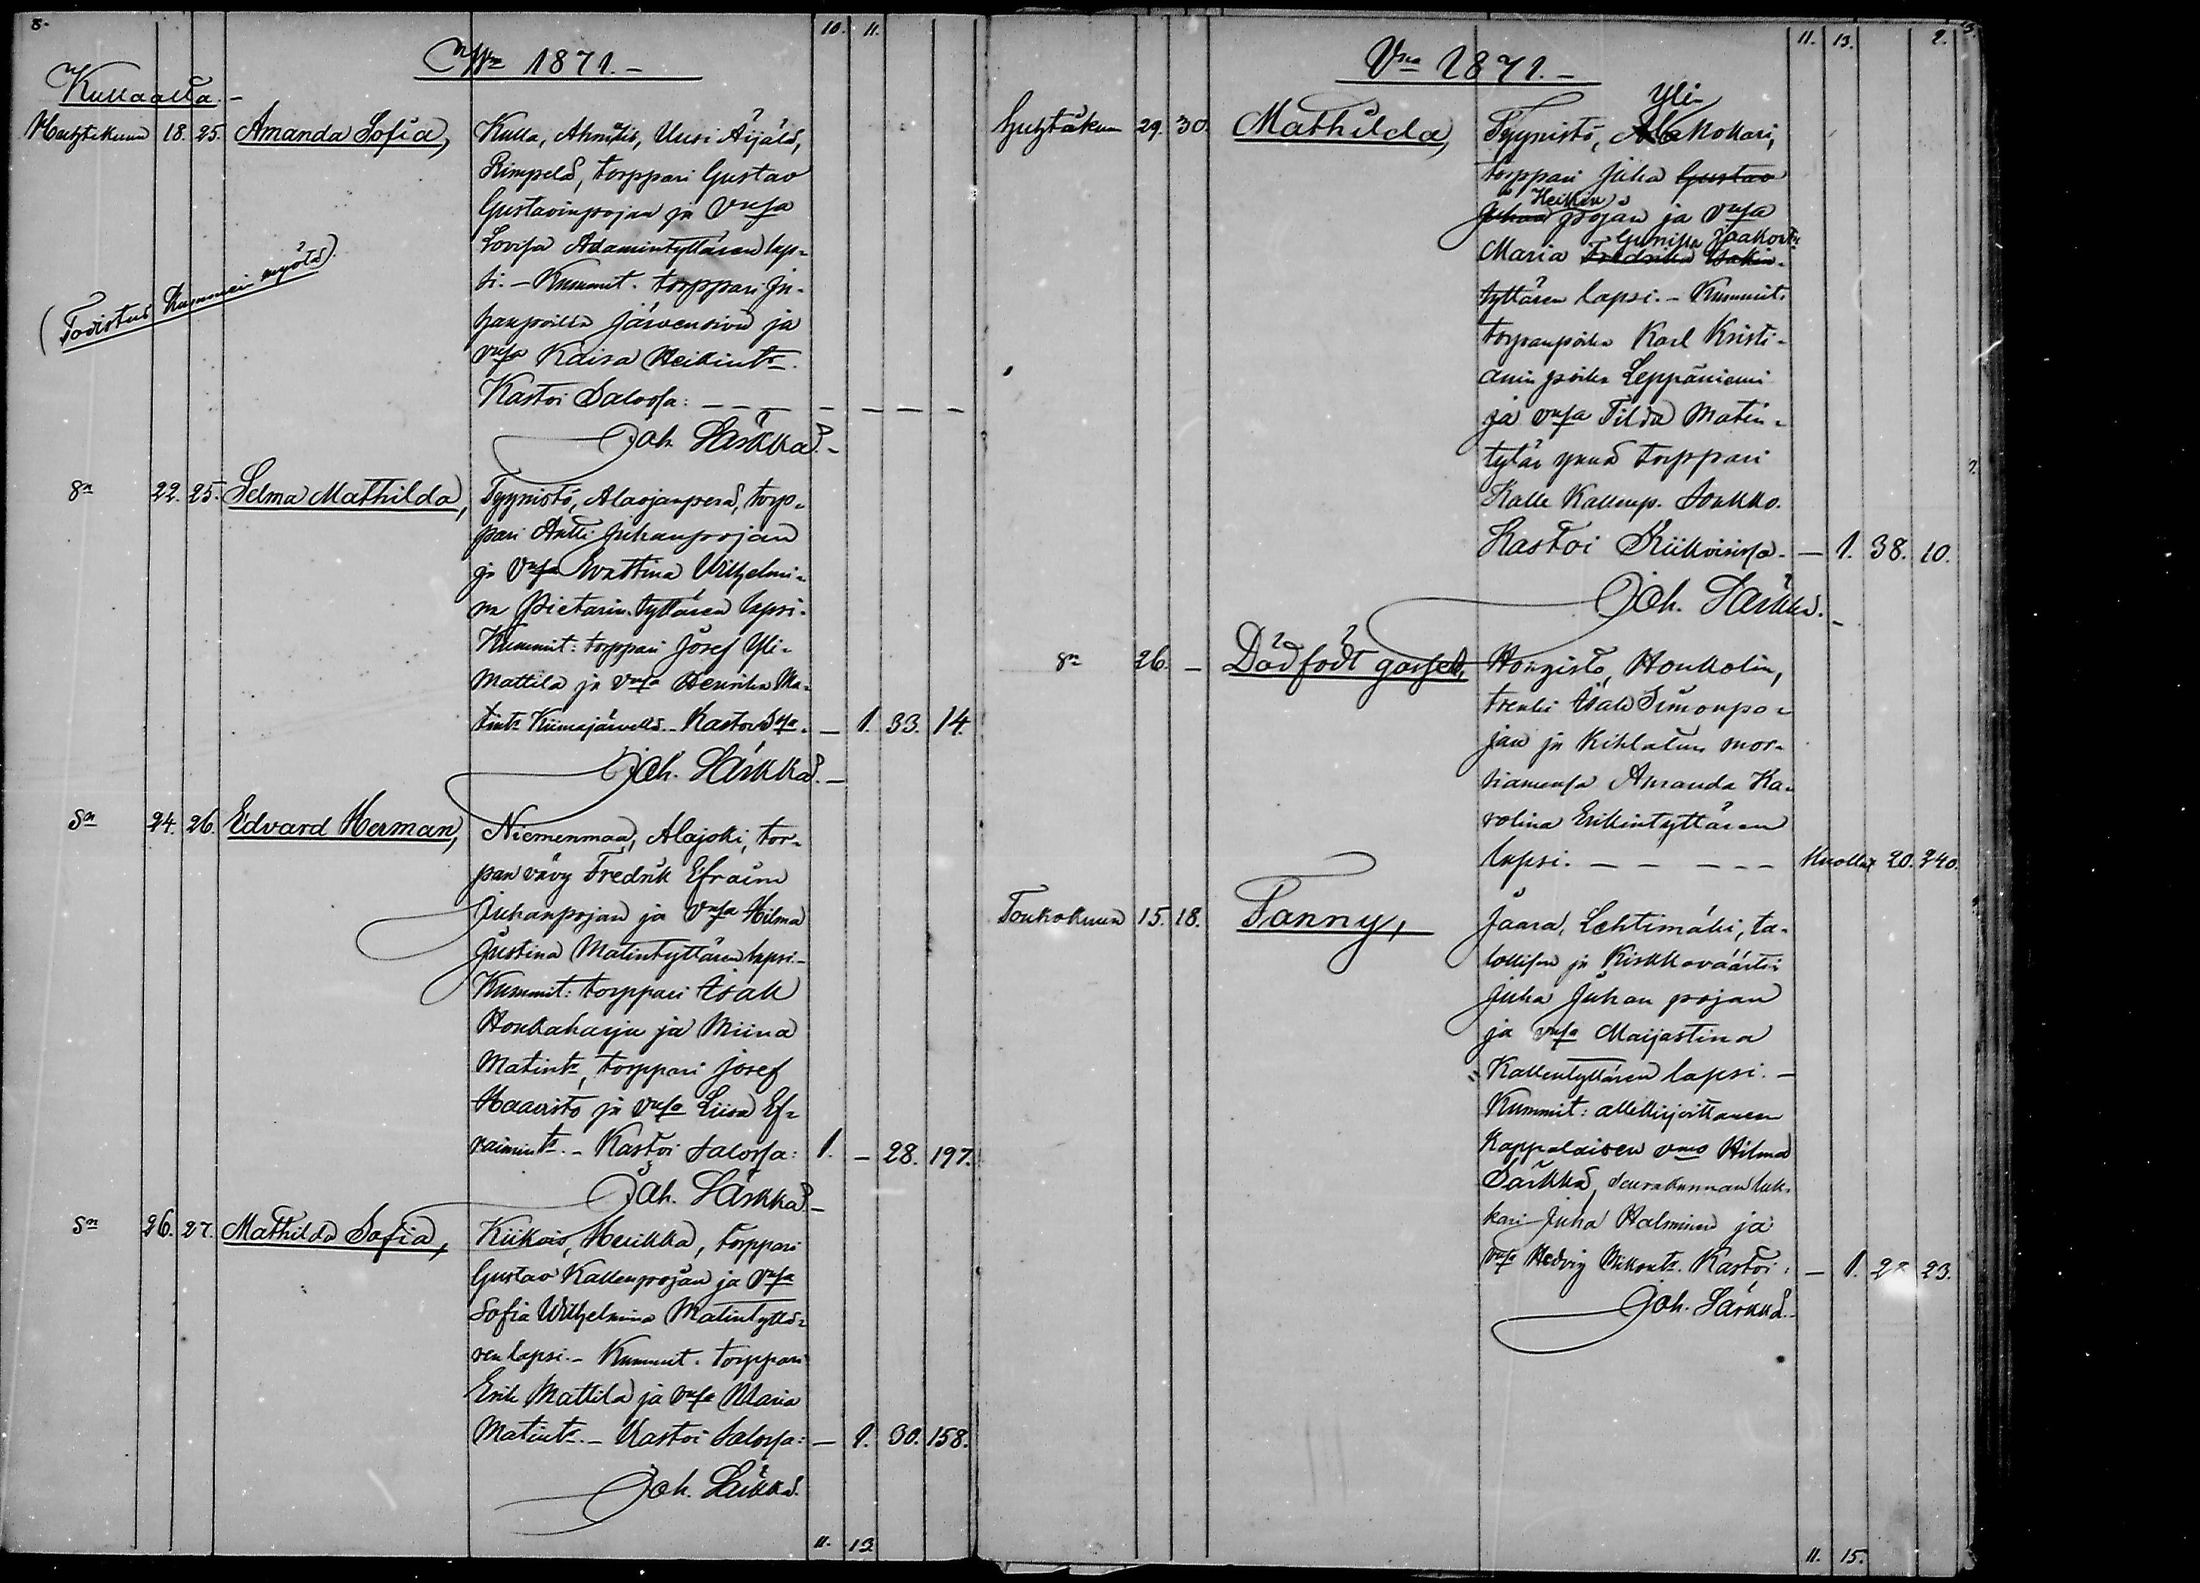 8.
10. 11.
Vna 1871.-
Kullaalla.-
Huhtikuun 18. 25. Amanda Sofia, Kulla, Ahmitis, Uusi Äijälä,
Rimpelä, torppari Gustav
Gustavinpojan ja vmsa
Lovisa Adamintyttären lap-
si.- Kummit: torppari Ju-
hanpoika Järvensivu ja
vmsa Kaisa Heikintr.
(Todistus Kummein myötä)
Kastoi Salossa: - - - - - - -
Joh. Särkkä.-
Sn 22. 25. Selma Mathilda, Tyynistö, Alaojanperä, torp-
pari Antti Juhanpojan
ja Vmsa Evastina Vilhelmi-
na Pietarin tyttären lapsi.
Kummit: torppari Josef Yli-
Mattila ja vmsa Henrika Ma-
tintr Kiimajärvellä. Kastoi - 1. 33. 14.
Joh. Särkkä.-
Sn 24. 26. Edvard Herman, Niemenmaa, Alajoki, tor-
pan vävy Fredrik Efraim
Juhanpojan ja Vmsa Hilma
Justina Matintyttären lapsi.-
Kummit: torppari Isak
Honkaharju ja Miina
Matintr, torppari Josef
Haavisto ja vmsa Liisa Ef-
raimintr.- Kastoi Salossa: 1. - 28. 197.
Joh. Särkkä.-
Sn 26. 27. Mathilda Sofia, Kiikois, Heikka, torppari
Gustav Kallenpojan ja Vmsa
Sofia Wilhelmina Matintyttä-
ren lapsi.- Kummit: torppari
Erik Mattila ja vmsa Maria
Matintr.- Kastoi Salossa: - 1. 30. 158.
Joh. Särkkä.
11. 13.
11. 13. 2.
Vna 1871.-
Yli-
Huhtikuun 29. 30. Mathilda, Tyynistö, Alakokari,
torppari Juha Gustav
Heikin
Juhan pojan ja Vmsa
Jaakon
Maria Fredrika Isakin-
tyttären lapsi.- Kummit:
torpanpoika Karl Kristi-
anin poika Leppäniemi
ja vmsa Tilda Matin-
tytär ynnä torppari
Kalle Kallenp. Soukko.
Kastoi Kiikoisissa.- - 1. 38. 10.
Joh. Särkkä.-
Sn 26. - Dödfödt gosseb, Hongisto, Honkolin,
trenki Isak Simonpo-
jan ja kihlatun mor-
siamensa Amanda Ka-
rolina Erikintyttären
lapsi. - - - - - Kuollut 20. 240.
Toukokuun 15. 18. Fanny, Jaara, Lehtimäki, ta-
lollisen ja Kirkkoväärtin
Juha Juhan pojan
ja vmsa Maijastina
Kallentyttären lapsi.-
Kummit: allekirjoittaneen
Kappalaisen vmo Hilma
Särkkä, seurakunnan luk-
kari Juha Halminen ja
vmsa Hedvig Mikontr. Kastoi: - 1. 28 23.
Joh. Särkkä.
11. 15.